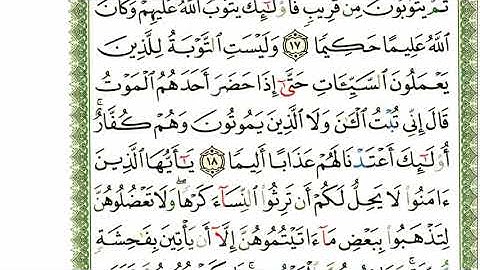 ثُمَّ يَتُوبُونَ مِن قَرِيبٍ فَأُو۟لَـٰٓئِكَ يَتُوبُ ٱللَّهُ عَلَيْهِمْ وَكَانَ
ٱللَّهُ عَلِيمًا حَكِيمًا ١٧ وَلَيْسَتِ ٱلتَّوْبَةُ لِلَّذِينَ
يَعْمَلُونَ ٱلسَّيِّـَٔاتِ حَتَّىٰٓ إِذَا حَضَرَ أَحَدَهُمُ ٱلْمَوْتُ
قَالَ إِنِّى تُبْتُ ٱلْـَٔـٰنَ وَلَا ٱلَّذِينَ يَمُوتُونَ وَهُمْ كُفَّارٌ ۚ
أُو۟لَـٰٓئِكَ أَعْتَدْنَا لَهُمْ عَذَابًا أَلِيمًا ١٨ يَـٰٓأَيُّهَا ٱلَّذِينَ
ءَامَنُوا۟ لَا يَحِلُّ لَكُمْ أَن تَرِثُوا۟ ٱلنِّسَآءَ كَرْهًا ۖ وَلَا تَعْضُلُوهُنَّ
لِتَذْهَبُوا۟ بِبَعْضِ مَآ ءَاتَيْتُمُوهُنَّ إِلَّآ أَن يَأْتِينَ بِفَـٰحِشَةٍ